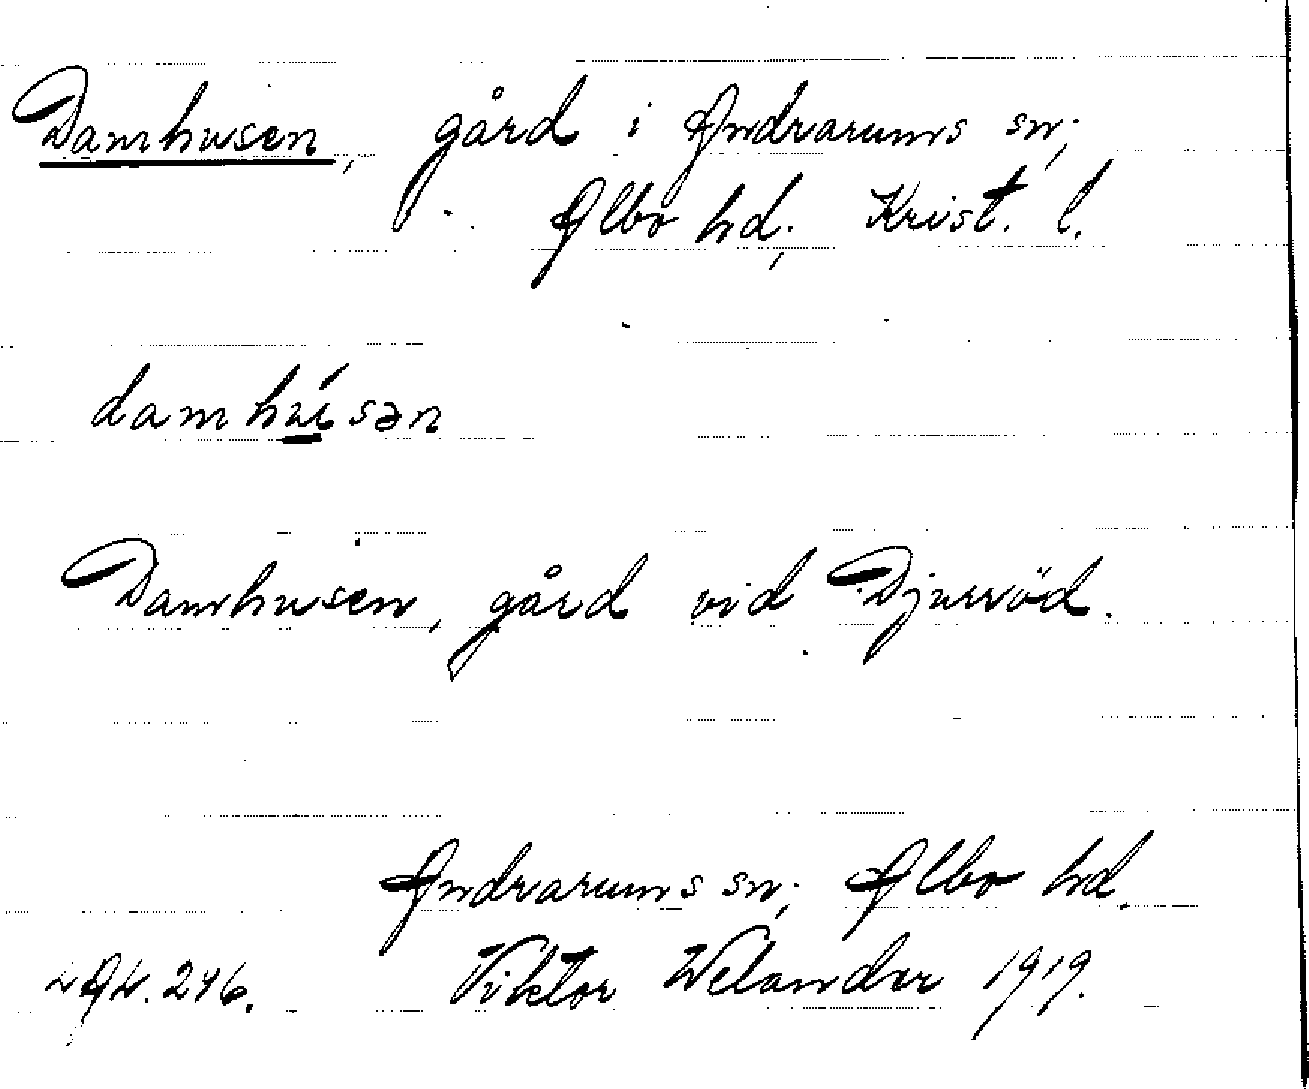 Damhusen, gård i Andrarums sn;
Albo hd; Krist. l.
damhúsən
Damhusen, gård vid Djurröd.
Andrarums sn; Albo hd.
Viktor Welander 1919.